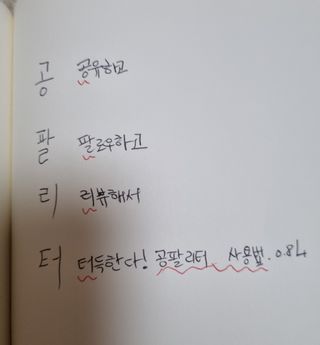 공 공유하고
팔 팔로우하고
리 리뷰해서
터 터득한다! 공팔리터 사용법. 0.8L